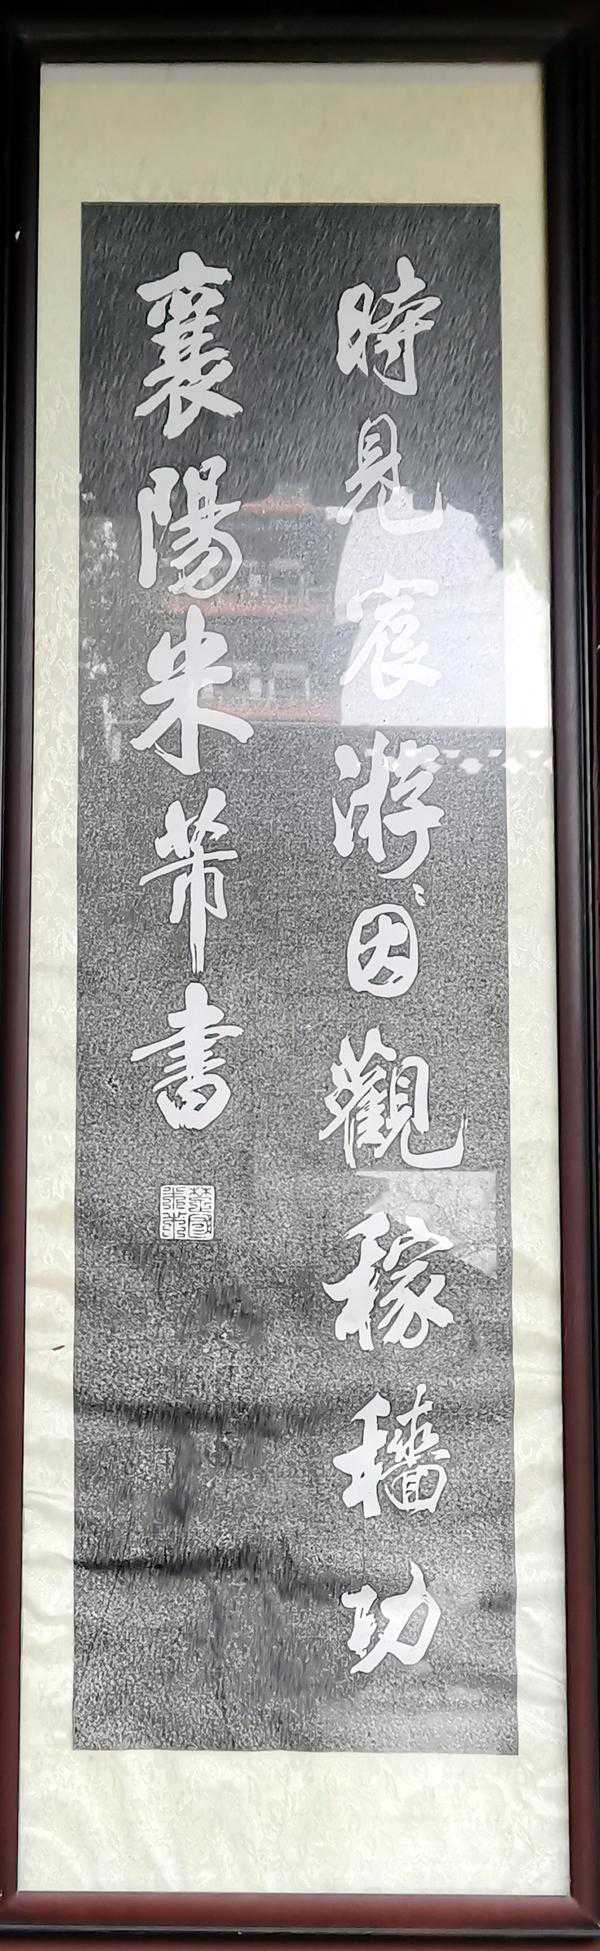 時見宸游〻因觀稼穡功
襄陽米芾書